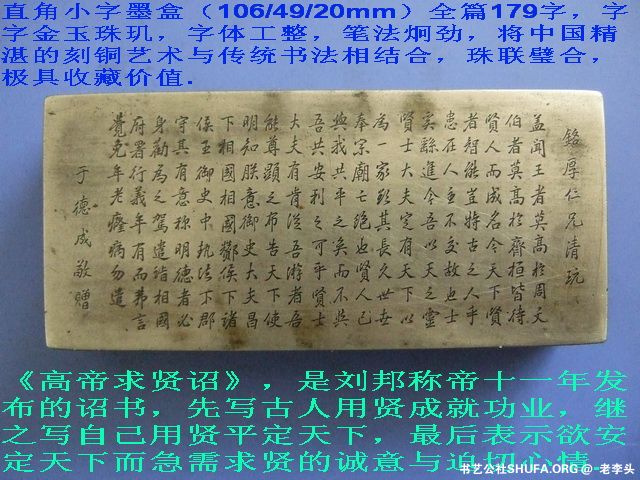 直角小字墨盒（106/49/20mm）全篇179字，字
字金玉珠玑，字体工整，笔法炯劲，将中国精
湛的刻铜艺术与传统书法相结合，珠联璧合，
极具收藏价值.
銘厚仁兄清玩
蓋聞王者莫高於周文
伯者莫高於齊桓皆待
賢人而成名今天下賢
者智能豈特古之人乎
患在人主不交故也士
奚繇進今吾以天之靈
賢士大夫定有天下以
為一家欲其長久世世
奉宗廟亡絕也賢人已
與我共平之矣而不與
吾共安利之可乎賢士
大夫有肯從吾游者吾
能尊顯之布告天下使
明知朕意御史大夫昌
下相國相國酇侯下諸
侯王御史中執法下郡
守其有意稱明德者必
身勸為之駕遣詣相國
府署行義年有而弗言
覺免年老癃病勿遣
于德成敬贈
《高帝求贤诏》，是刘邦称帝十一年发
布的诏书，先写古人用贤成就功业，继
之写自己用贤平定天下，最后表示欲安
定天下而急需求贤的诚意与迫切心情.
书艺公社SHUFA.ORG @ -老李头